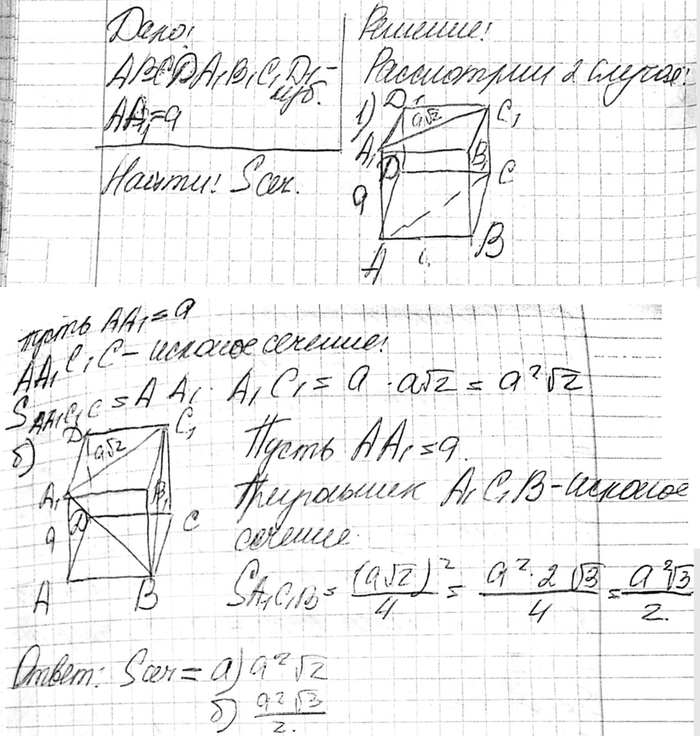 Дано:
ABCDA₁B₁C₁D₁-
куб.
AA₁=a
Найти: Sсеч.
Решение:
Рассмотрим 2 случая:
1)
D₁
C₁
a√2
A₁
B₁
D
C
a
A
B
пусть AA₁=a
AA₁C₁C - искомое сечение:
S AA₁C₁C = AA₁ · A₁C₁ = a · a√2 = a²√2
б)
D₁
C₁
a√2
A₁
B₁
D
C
a
A
B
Пусть AA₁=a.
Треугольник A₁C₁B - искомое
сечение.
S A₁C₁B = (a√2)²/4 = a²·2√3/4 = a²√3/2.
Ответ: Sсеч = а) a²√2
б) a²√3/2.